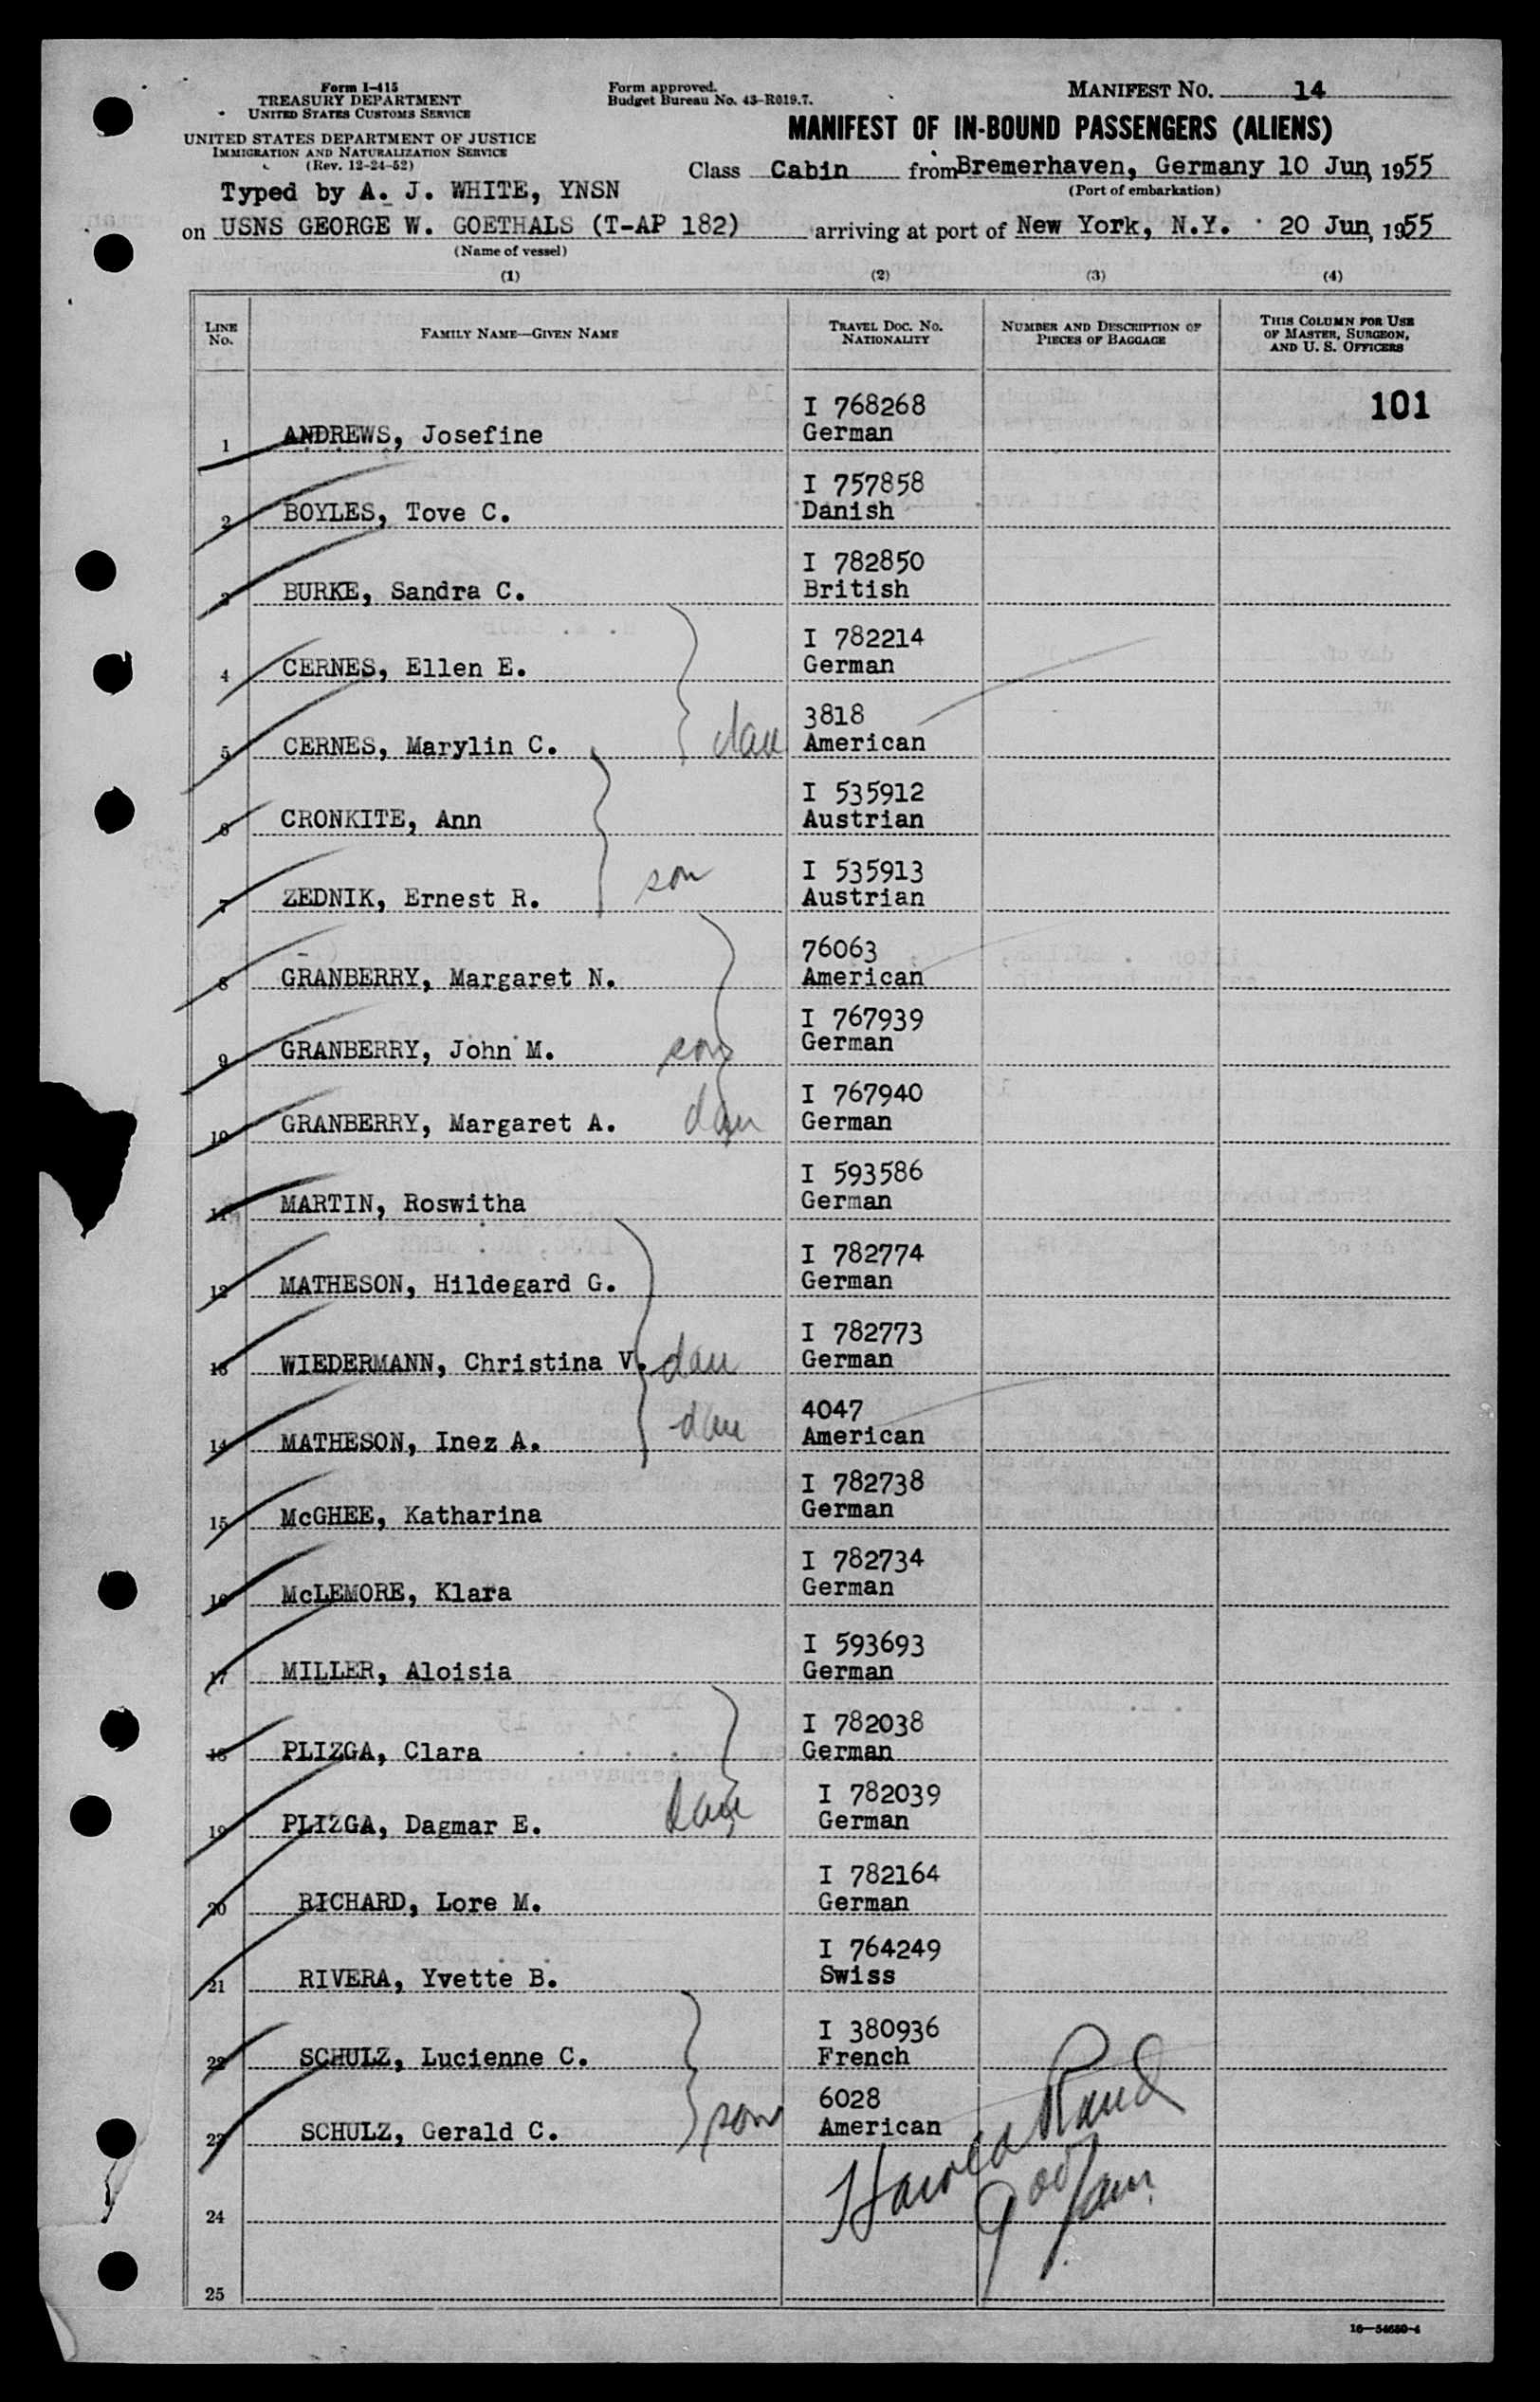 Form I-415
TREASURY DEPARTMENT
UNITED STATES CUSTOMS SERVICE
UNITED STATES DEPARTMENT OF JUSTICE
IMMIGRATION AND NATURALIZATION SERVICE
(Rev. 12-24-52)
Form approved.
Budget Bureau No. 43-R019.7.
MANIFEST NO. 14
MANIFEST OF IN-BOUND PASSENGERS (ALIENS)
Class Cabin from Bremerhaven, Germany 10 Jun, 1955
(Port of embarkation)
Typed by A. J. WHITE, YNSN
on USNS GEORGE W. GOETHALS (T-AP 182) arriving at port of New York, N.Y. 20 Jun, 1955
(Name of vessel)
(1) (2) (3) (4)
LINE No. FAMILY NAME—GIVEN NAME TRAVEL DOC. NO. NATIONALITY NUMBER AND DESCRIPTION OF PIECES OF BAGGAGE THIS COLUMN FOR USE OF MASTER, SURGEON, AND U. S. OFFICERS
101
I 768268
1 ANDREWS, Josefine German
I 757858
2 BOYLES, Tove C. Danish
I 782850
3 BURKE, Sandra C. British
I 782214
4 CERNES, Ellen E. German
3818
5 CERNES, Marylin C. dau American
I 535912
6 CRONKITE, Ann Austrian
I 535913
7 ZEDNIK, Ernest R. son Austrian
76063
8 GRANBERRY, Margaret N. American
I 767939
9 GRANBERRY, John M. son German
I 767940
10 GRANBERRY, Margaret A. dau German
I 593586
11 MARTIN, Roswitha German
I 782774
12 MATHESON, Hildegard G. German
I 782773
13 WIEDERMANN, Christina V. dau German
4047
14 MATHESON, Inez A. dau American
I 782738
15 McGHEE, Katharina German
I 782734
16 McLEMORE, Klara German
I 593693
17 MILLER, Aloisia German
I 782038
18 PLIZGA, Clara German
I 782039
19 PLIZGA, Dagmar E. dau German
I 782164
20 RICHARD, Lore M. German
I 764249
21 RIVERA, Yvette B. Swiss
I 380936
22 SCHULZ, Lucienne C. French
6028
23 SCHULZ, Gerald C. son American
Harold Rand
24
25
16—54650-4